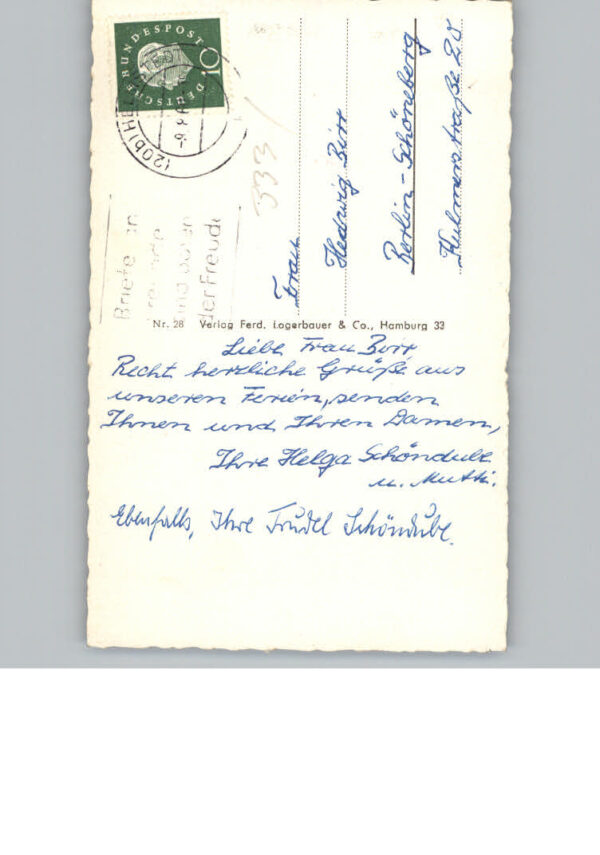 DEUTSCHE BUNDESPOST
10
(20b)
Briefe an
der Freude
333
Frau
Hedwig Birr
Berlin-Schöneberg
Kulmerstraße 20
Nr. 28 Verlag Ferd. Lagerbauer & Co., Hamburg 33
Liebe Frau Birr
Recht herzliche Grüße aus
unseren Ferien, senden
Ihnen und Ihren Damen,
Ihre Helga Schöndube
u. Mutti.
Ebenfalls, Ihre Trudel Schöndube.